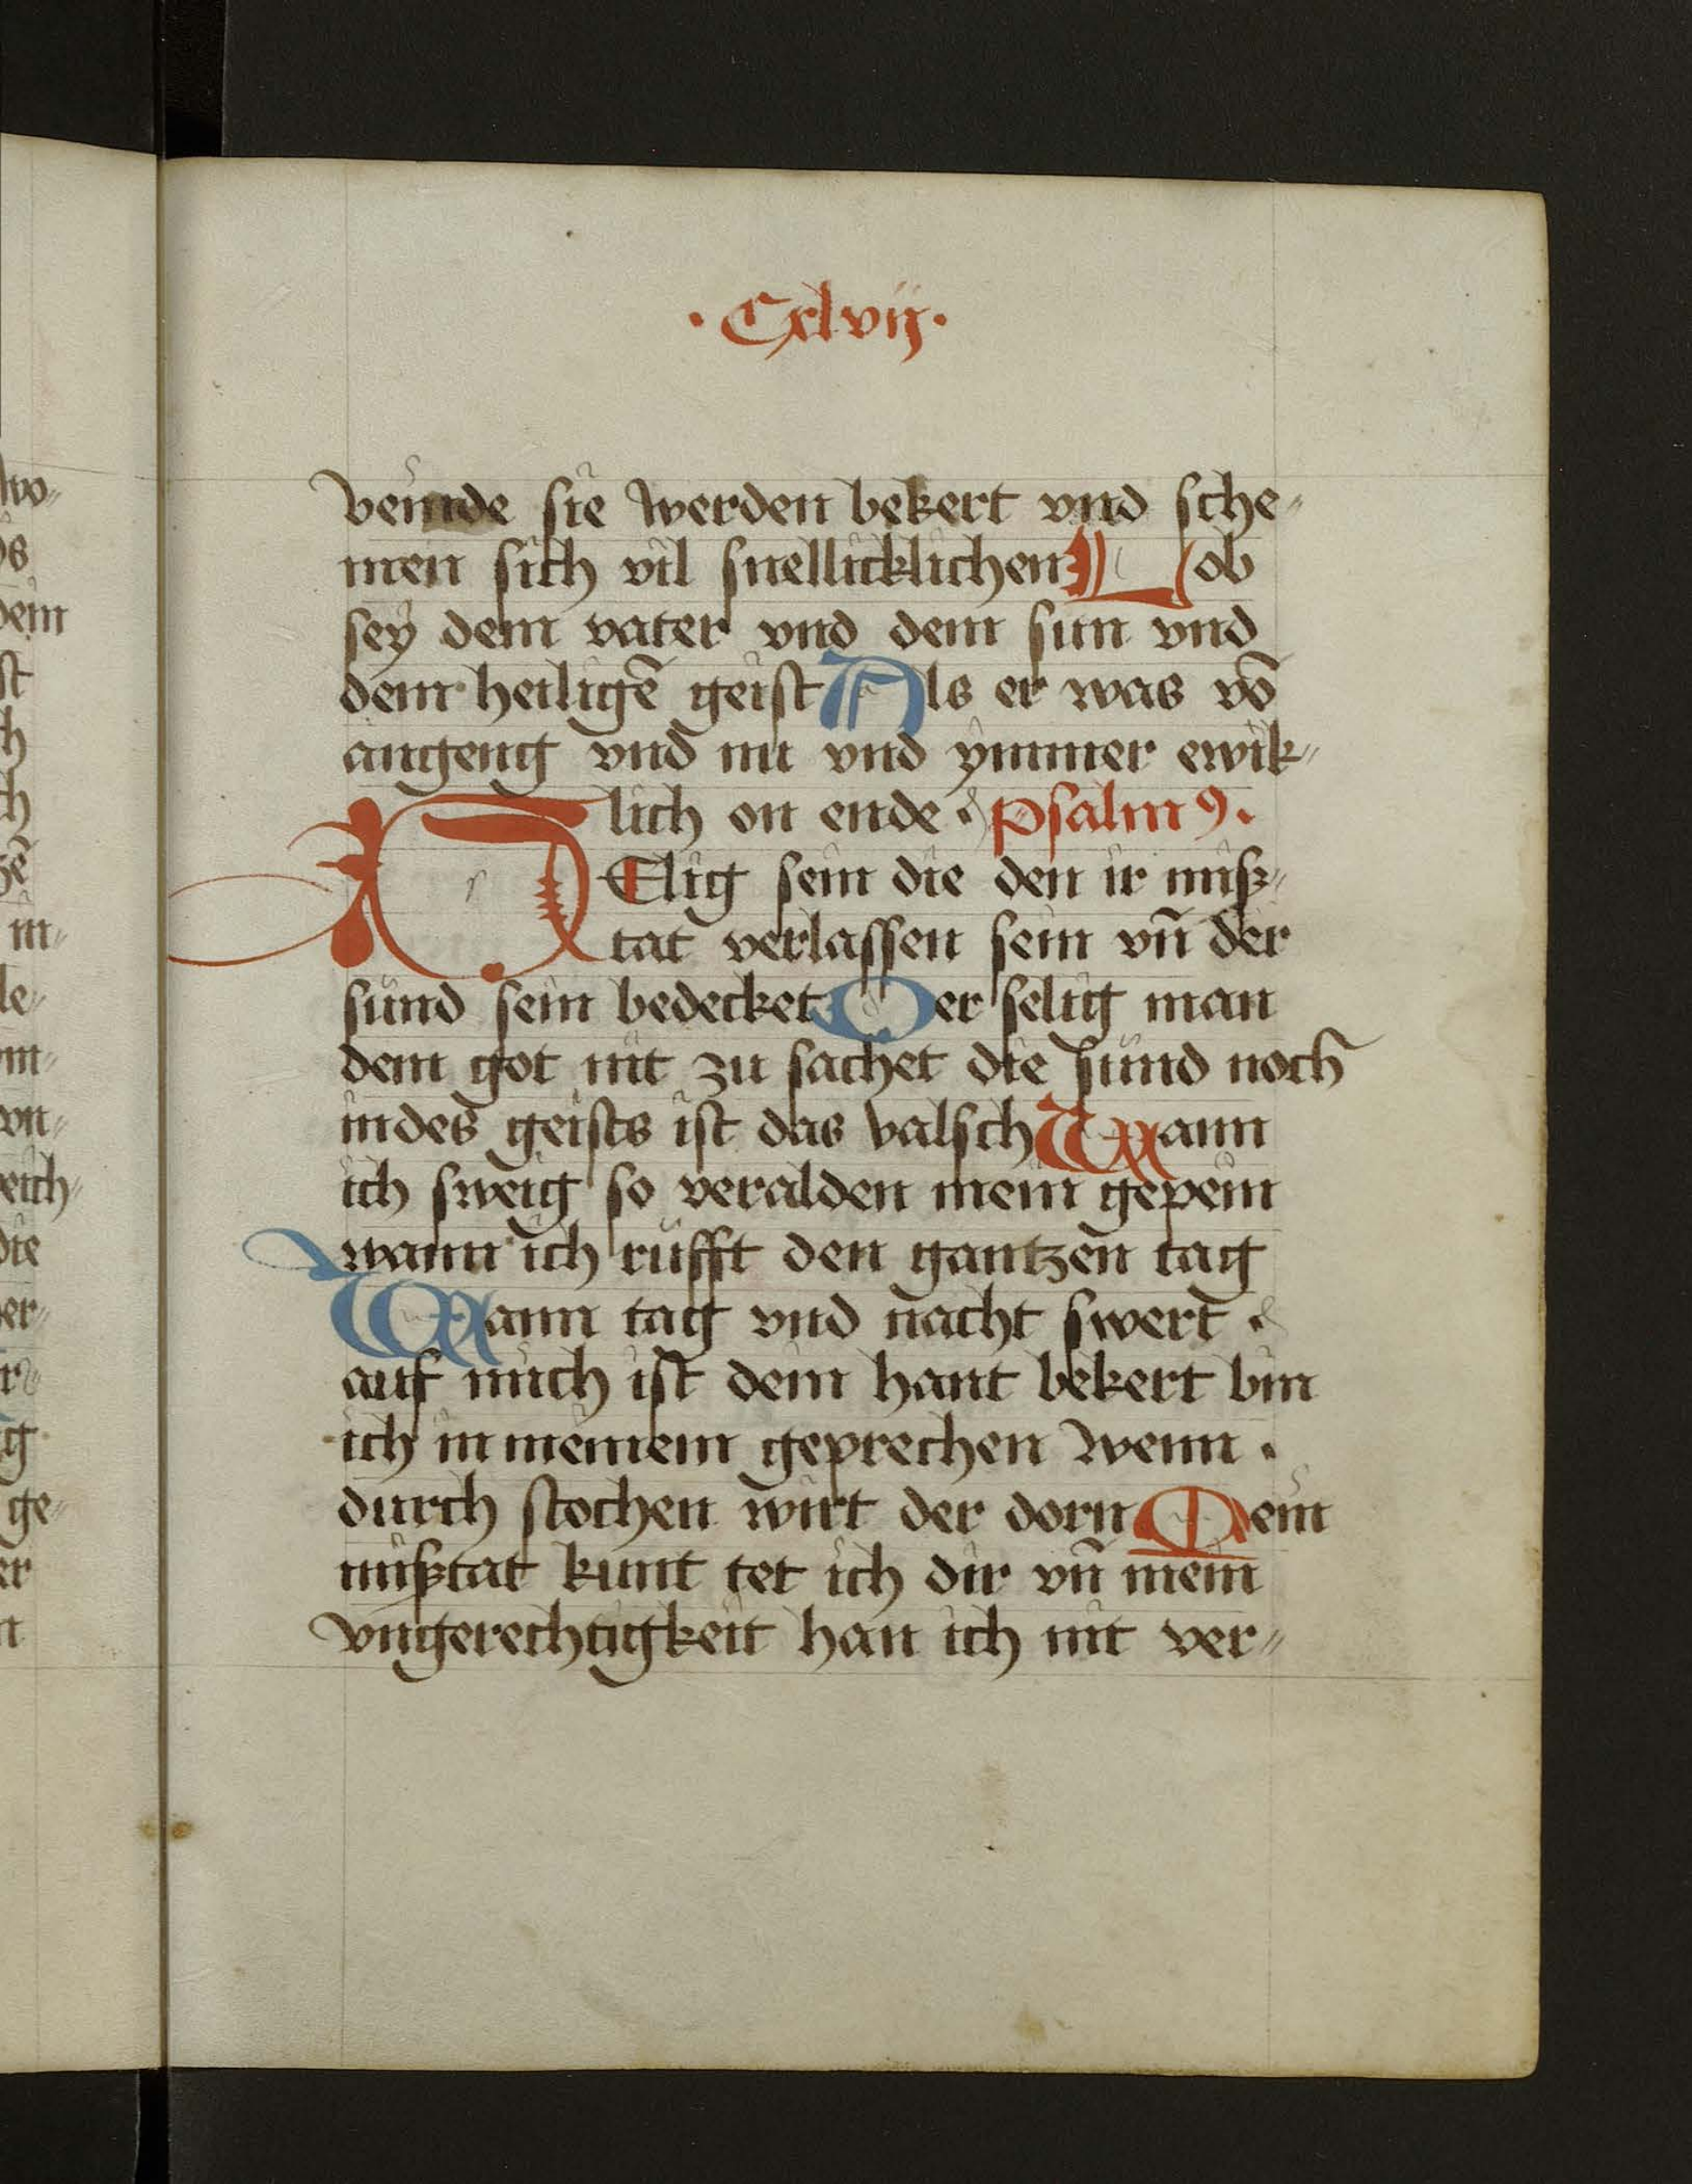 · Cxlvij ·
veinde sie werden bekert vnd sche⸗
men sich vil snellicklichen Lob
sey dem vater vnd dem sun vnd
dem heiligē geist Als er was vō
angeng vnd nu vnd ymmer ewik⸗
lich on ende · Psalm9 ·
SElig sein die den ir miß⸗
tat verlassen sein vn̄ der
sünd sein bedecket Der selig man
dem got nit zu sachet die sünd noch
in des geists ist das valsch Wann
ich sweig so veralden mein gepein
wann ich rüfft den gantzen tag
Wann tag vnd nacht swert ·
auf mich ist dein hant bekert bin
ich in meinem geprechen wenn ·
durch stochen wirt der dorn Mein
mißtat kunt tet ich dir vn̄ mein
vngerechtigkeit han ich nit ver⸗